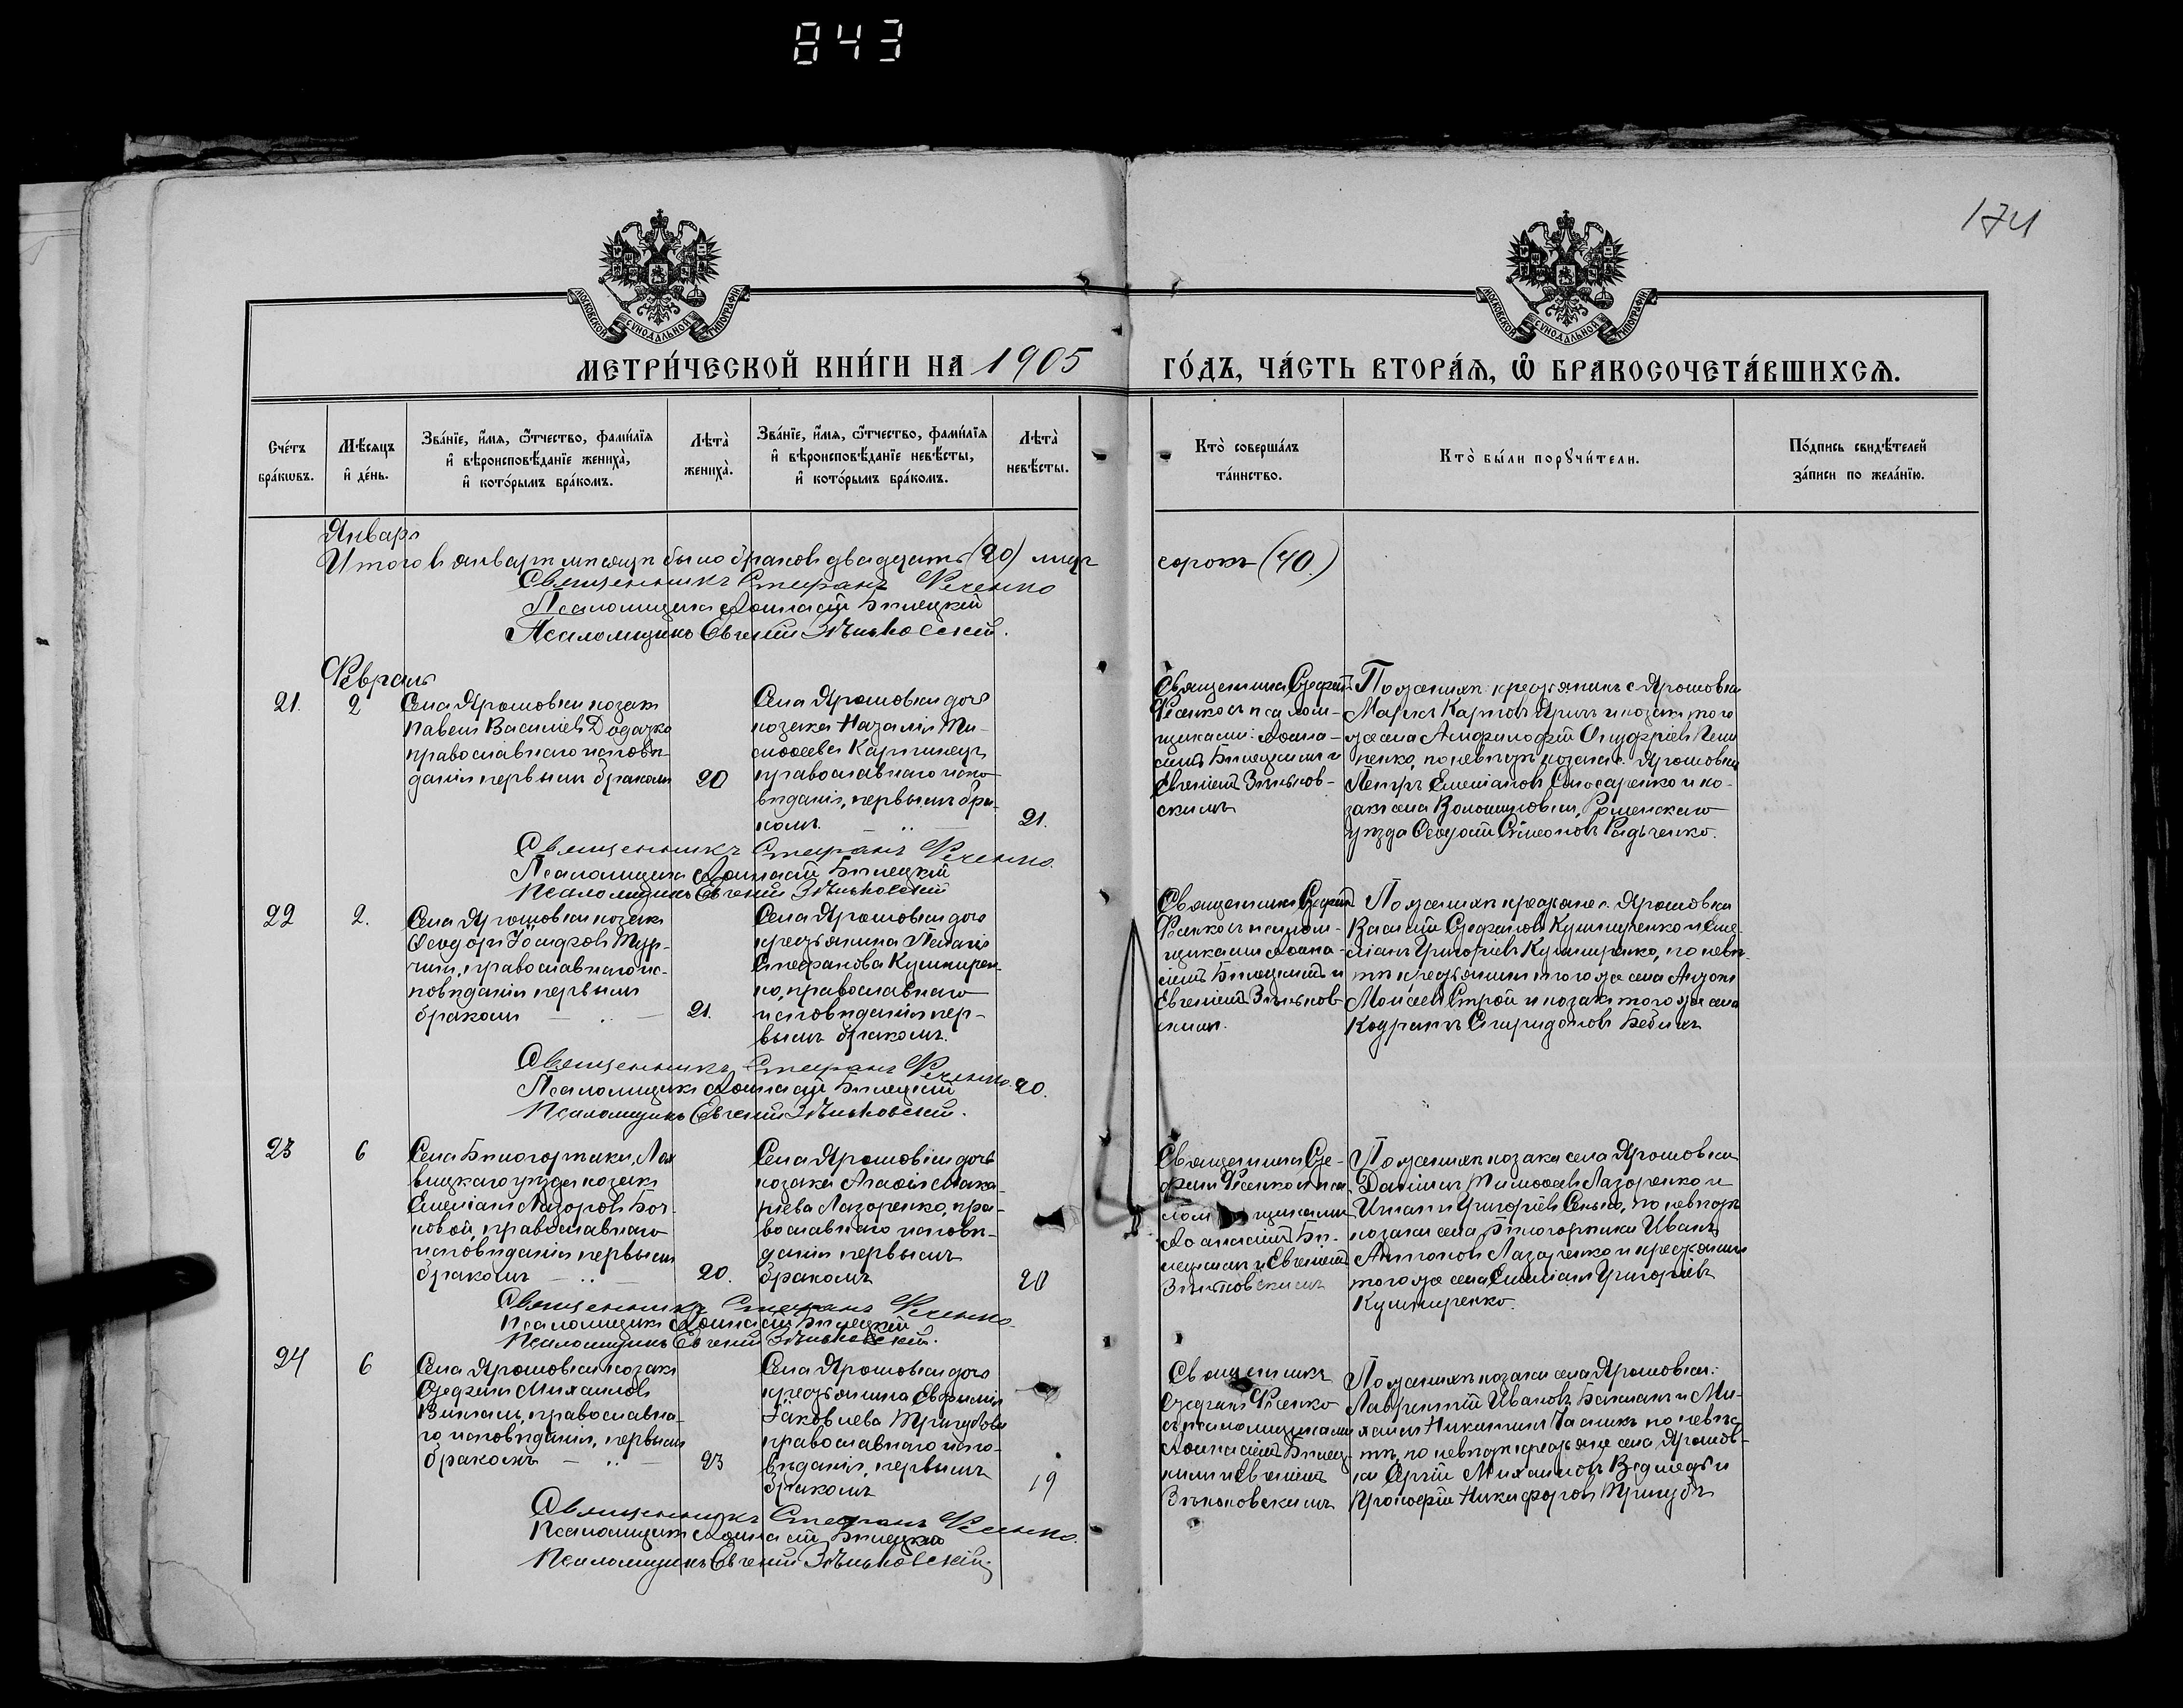 843
174
МОСКОВСКОЙ СѴНОДАЛЬНОЙ ТИПОГРАФІИ
МОСКОВСКОЙ СѴНОДАЛЬНОЙ ТИПОГРАФІИ
МЕТРИ́ЧЕСКОЙ КНИ́ГИ НА 1905 ГО́ДЪ, ЧА́СТЬ ВТОРА́Я, Ѡ҆ БРАКОСОЧЕТА́ВШИХСѦ.
Сче́тъ
бра́кѡвъ.
Мѣ́сѧцъ
и҆ де́нь.
Зва́нїе, и҆́мѧ, ѻ҆́тчество, фами́лїѧ
и҆ вѣроисповѣ́данїе женихà,
и҆ кото́рымъ бра́комъ.
Лѣтà
женихà.
Зва́нїе, и҆́мѧ, ѻ҆́тчество, фами́лїѧ
и҆ вѣроисповѣ́данїе невѣ́сты,
и҆ кото́рымъ бра́комъ.
Лѣтà
невѣ́сты.
Ктò соверша́лъ
та́инство.
Ктò бы́ли порꙋчи́тели.
По́дпись свидѣ́телей
за́писи по жела́нїю.
Январь
Итого въ январѣ мѣсяцѣ было браковъ двадцать (20) лицъ сорокъ (40.)
Священникъ Стефанъ Фесенко
Псаломщикъ Аѳанасій Бѣлецкій
Псаломщикъ Евгеній Зѣньковскій.
Февраль
21.
2
Села Ярошовки козакъ
Павелъ Василіевъ Додатко
православнаго исповѣ-
данія первымъ бракомъ
20
Села Ярошовки дочь
козака Наталія Ти-
моѳеева
православнаго испо-
вѣданія, первымъ бра-
комъ.
21.
Священникъ Стефанъ
Фесенко съ псалом-
щиками: Аѳана-
сіемъ Бѣлецкимъ и
Евгеніемъ Зѣньков-
скимъ
По женихѣ: крестьянинъ с. Ярошовки
Маркъ Карповъ и козакъ того
же села Амфилофій Онуфріевъ
по невѣстѣ козаки с. Ярошовки
Петръ Емельяновъ Слюсаренко и ко-
закъ села Волошиновки, Роменскаго
уѣзда Ѳеодосій Симеоновъ Радченко.
Священникъ Стефанъ Фесенко.
Псаломщикъ Аѳанасій Бѣлецкій
Псаломщикъ Евгеній Зѣньковскій
22
2.
Села Ярошовки козакъ
Ѳеодоръ Іосифовъ
православнаго ис-
повѣданія первымъ
бракомъ
21.
Села Ярошовки дочь
крестьянина Пелагія
Стефанова Кушнирен-
ко, православнаго
исповѣданія пер-
вымъ бракомъ.
20.
Священникъ Стефанъ
Фесенко съ псалом-
щиками Аѳана-
сіемъ Бѣлецкимъ и
Евгеніемъ Зѣньков-
скимъ.
По женихѣ крестьяне с. Ярошовки
Василій Стефановъ Кушниренко и Еме-
ліанъ Григоріевъ Кушниренко, по невѣс-
тѣ крестьянинъ того же села
Моисеевъ Строй и козакъ того же села
Кодратъ Спиридоновъ
Священникъ Стефанъ Фесенко.
Псаломщикъ Аѳанасій Бѣлецкій
Псаломщикъ Евгеній Зѣньковскій.
23
6
Села Бѣлогорѣлки, Лох-
вицкаго уѣзда козакъ
Емеліанъ Лазоревъ
православнаго
исповѣданія первымъ
бракомъ
20.
Села Ярошовки дочь
козака Агафія Мака-
ріева Лазоренко, пра-
вославнаго исповѣ-
данія первымъ
бракомъ
20
Священникъ Сте-
фанъ Фесенко и пса-
ломщиками
Аѳанасіемъ Бѣ-
лецкимъ и Евгеніемъ
Зѣньковскимъ
По женихѣ козаки села Ярошовки
Даніилъ Тимоѳеевъ Лазоренко и
Григоріевъ по невѣстѣ
козаки села Бѣлогорѣлки Иванъ
Антоновъ Лазаренко и крестьянинъ
того же села Емеліанъ Григоріевъ
Кушниренко.
Священникъ Стефанъ Фесенко.
Псаломщикъ Аѳанасій Бѣлецкій
Псаломщикъ Евгеній Зѣньковскій.
24
6
Села Ярошовки козакъ
Стефанъ Михаиловъ
православна-
го исповѣданія, первымъ
бракомъ
23
Села Ярошовки дочь
крестьянина Евфимія
Іаковлева Тригубова
православнаго испо-
вѣданія, первымъ
бракомъ
19
Священникъ
Стефанъ Фесенко
съ псаломщиками
Аѳанасіемъ Бѣлец-
кимъ и Евгеніемъ
Зѣньковскимъ
По женихѣ козаки села Ярошовки:
Лаврентій Ивановъ и Ми-
хаилъ Никитинъ по невѣс-
тѣ, по невѣстѣ крестьяне села Ярошов-
ки Сергій Михаиловъ Ведмедь и
Прокофій Никифоровъ Тригубъ
Священникъ Стефанъ Фесенко.
Псаломщикъ Аѳанасій Бѣлецкій
Псаломщикъ Евгеній Зѣньковскій.